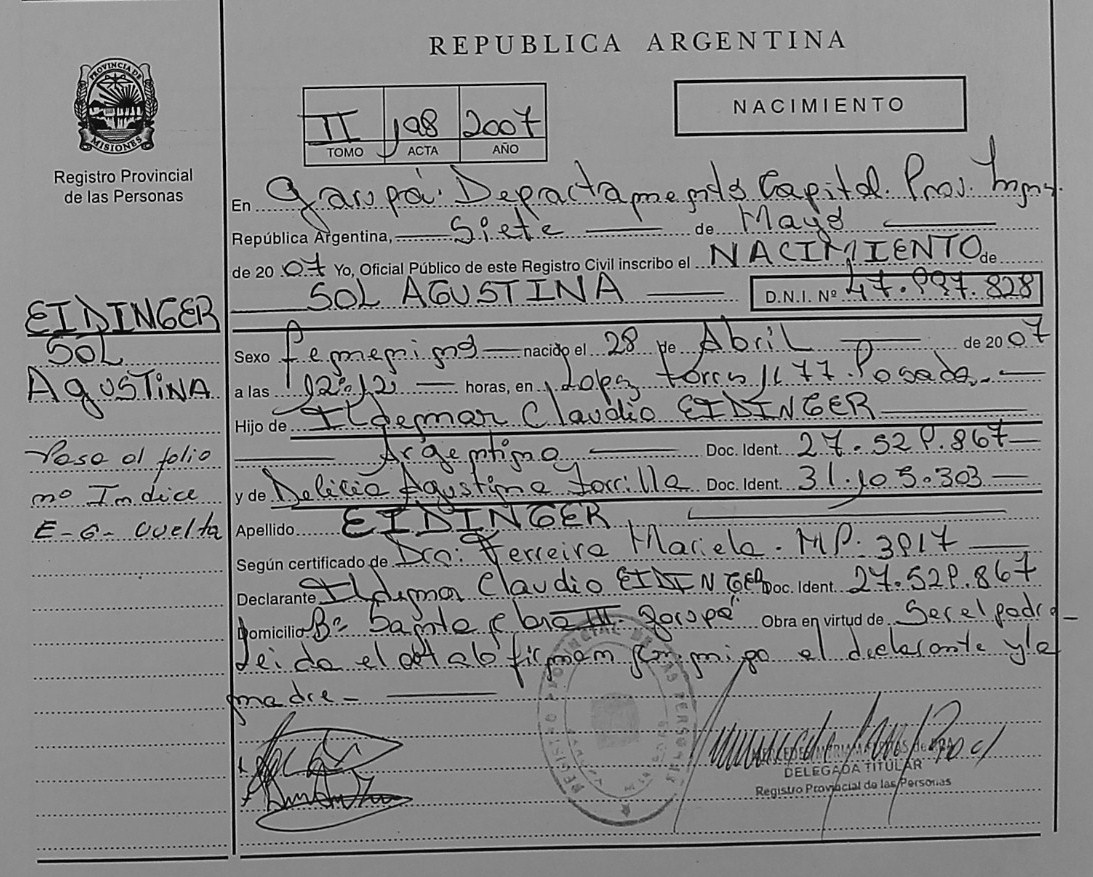 REPUBLICA ARGENTINA
PROVINCIA DE MISIONES
Registro Provincial
de las Personas
NACIMIENTO
II 198 2007
TOMO ACTA AÑO
En Garupá. Departamento Capital. Prov. Mnes.
República Argentina, Siete de Mayo
de 2007 Yo, Oficial Público de este Registro Civil inscribo el NACIMIENTO de
SOL AGUSTINA D.N.I. Nº
Sexo femenino nacido el 28 de Abril de 2007
a las 12:12 horas, en Lopez Torres 1177. Posadas.
Hijo de Ildemar Claudio EIDINGER
Argentina Doc. Ident. 27.529.867
y de Delicia Agustina Torrilla Doc. Ident. 31.105.303
Apellido EIDINGER
Según certificado de Dra: Ferreira Mariela. MP. 3917
Declarante Ildemar Claudio EIDINGER Doc. Ident. 27.529.867
Domicilio Bº Santa Clara III. Garupá Obra en virtud de Ser el padre
Leida el acta firman conmigo el declarante y la
madre
EIDINGER
SOL
AgUSTiNA
Pasa al folio
nº Indice
E-G- vuelta
REGISTRO PROVINCIAL DE LAS PERSONAS
DELEGADA TITULAR
Registro Provincial de las Personas